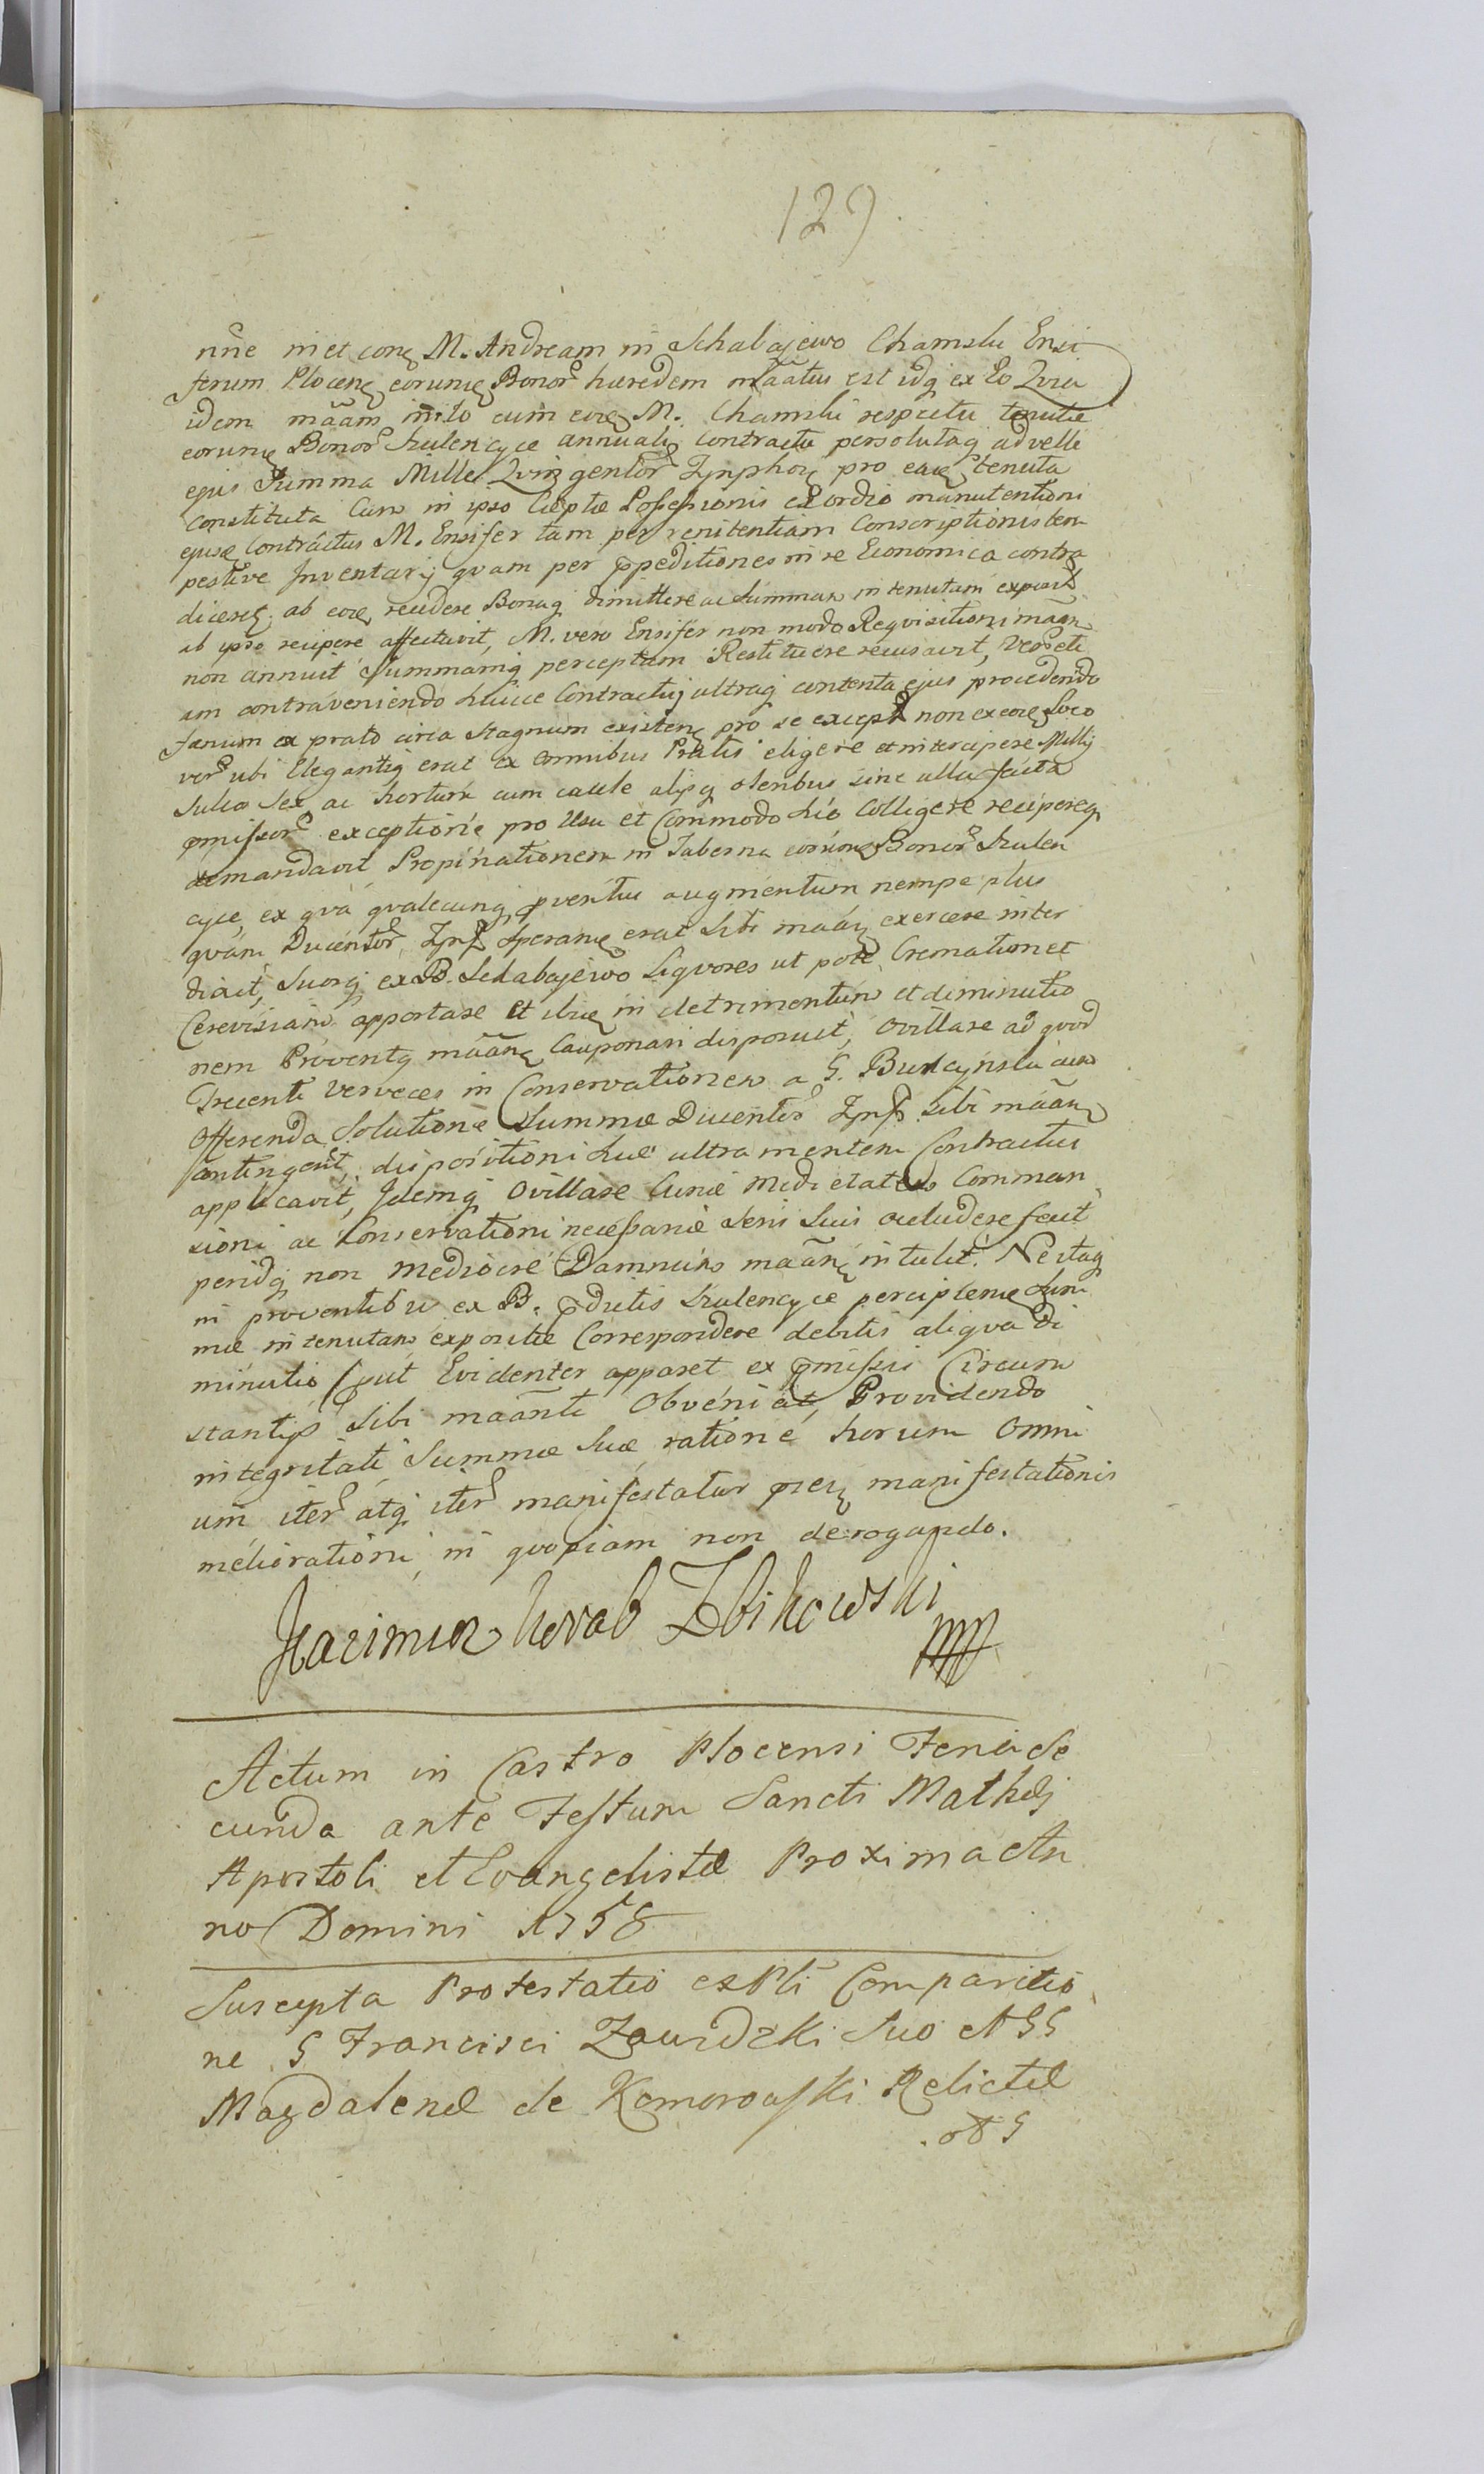 129.
nne in et conz M. Andream in Schabajewo Chamski Ensi
ferum Plocenz eorumz Bonor hæredem mãatus est idq ex Eo Qvia
idem mãam inito cum eorz M. Chamski respectu tenutæ
eorumz Bonor Szulencyce annualiz Contractu persolutaq ad velle
ejus Summa Mille Qvingentor Znpho pro eade tenuta
Constituta Cum in ipso Cæptæ Possessionis exordio manutentioni
ejusz Contractus M. Ensifer tam per renitentiam Conscriptionis tem
pestive Inventarij qvam per ppeditiones in re Economica contra
diceret, ab eorz recedere Bonaq dimittere ac Summam in tenutam exposit
ab ipso recipere affectavit, M. vero Ensifer non modo Reqvisitioni mãan
non annuit Summamq perceptam Restituere recusavit, Verum eti
am contraveniendo huicce Contractuj ultraq contenta ejus procedendo
fænum ex prato circa Stagnum existenz pro se except non ex eorz Loco
ver ubi Elegantiq erat ex omnibus Pratis eligere et intercipere Millij
Sulcos Sex ac hortum cum caule alijsq oleribus sine ulla facta
pmissor exceptione pro Usu et Commodo Suo Colligere recipereq
demandavit Propinationem in Taberna eorumz Bonor Szulen
cyce, ex qva qvalecunq pventus augmentum nempe plus
qvam Ducentor Znp Speranz erat Sibi mãan exercere inter
dixit, Suosq ex B. Schabajewo Liqvores ut pote Crematum et
Cerevisiam apportare et ibiz in detrimentum et diminutio
nem Proventq mãanz Cauponari disposuit, Ovillare ad qvod
Trecenti Verveces in Conservationem a G. Burcynski cum
Offerenda Solutione Summæ Ducentor Znp Sibi mãan
contingent, dispositioni Suæ ultra mentem Contractus
applicavit, Idemq Ovillare Curiæ medietatem Comman
sioni ac Conservationi necessariæ Seris Suis occludere fecit
peridq non mediocre Damnum mãanz intulit. Ne itaq
in proventibus ex B. pdictis Szulencyce percipienz Sum
mæ in tenutam expositæ Correspondere debitis aliqva di
minutio put Evidenter apparet ex pmissis Circum
stantijs Sibi mãanti Obveniat, Providendo
integritati Summæ Suæ ratione horum Omni
um iter atq iter manifestatur prez manifestationis
meliorationi in qvopiam non derogando.
Kazimierz Korab Zbikowski
mp
Actum in Castro Plocensi Feria Se
cunda ante Festum Sancti Mathæj
Apostoli et Evangelistæ Proxima An
no Domini 1758
Suscepta Protestatio ex Pli Comparitio
ne G Francisci Zawidzki Suo et GG
Magdalenæ de Komorowski Relictæ
et G